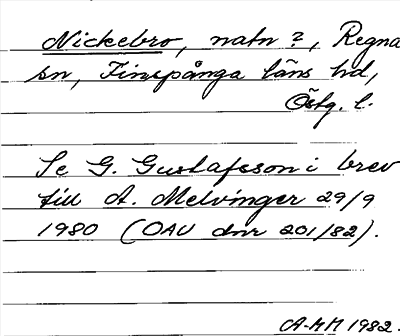 Nickebro, natn ?, Regna
sn, Finspånga läns hd,
Östg. l.
Se G. Gustafsson i brev
till A. Melvinger 29/9
1980 (OAU dnr 201/82).
A-MH 1982.